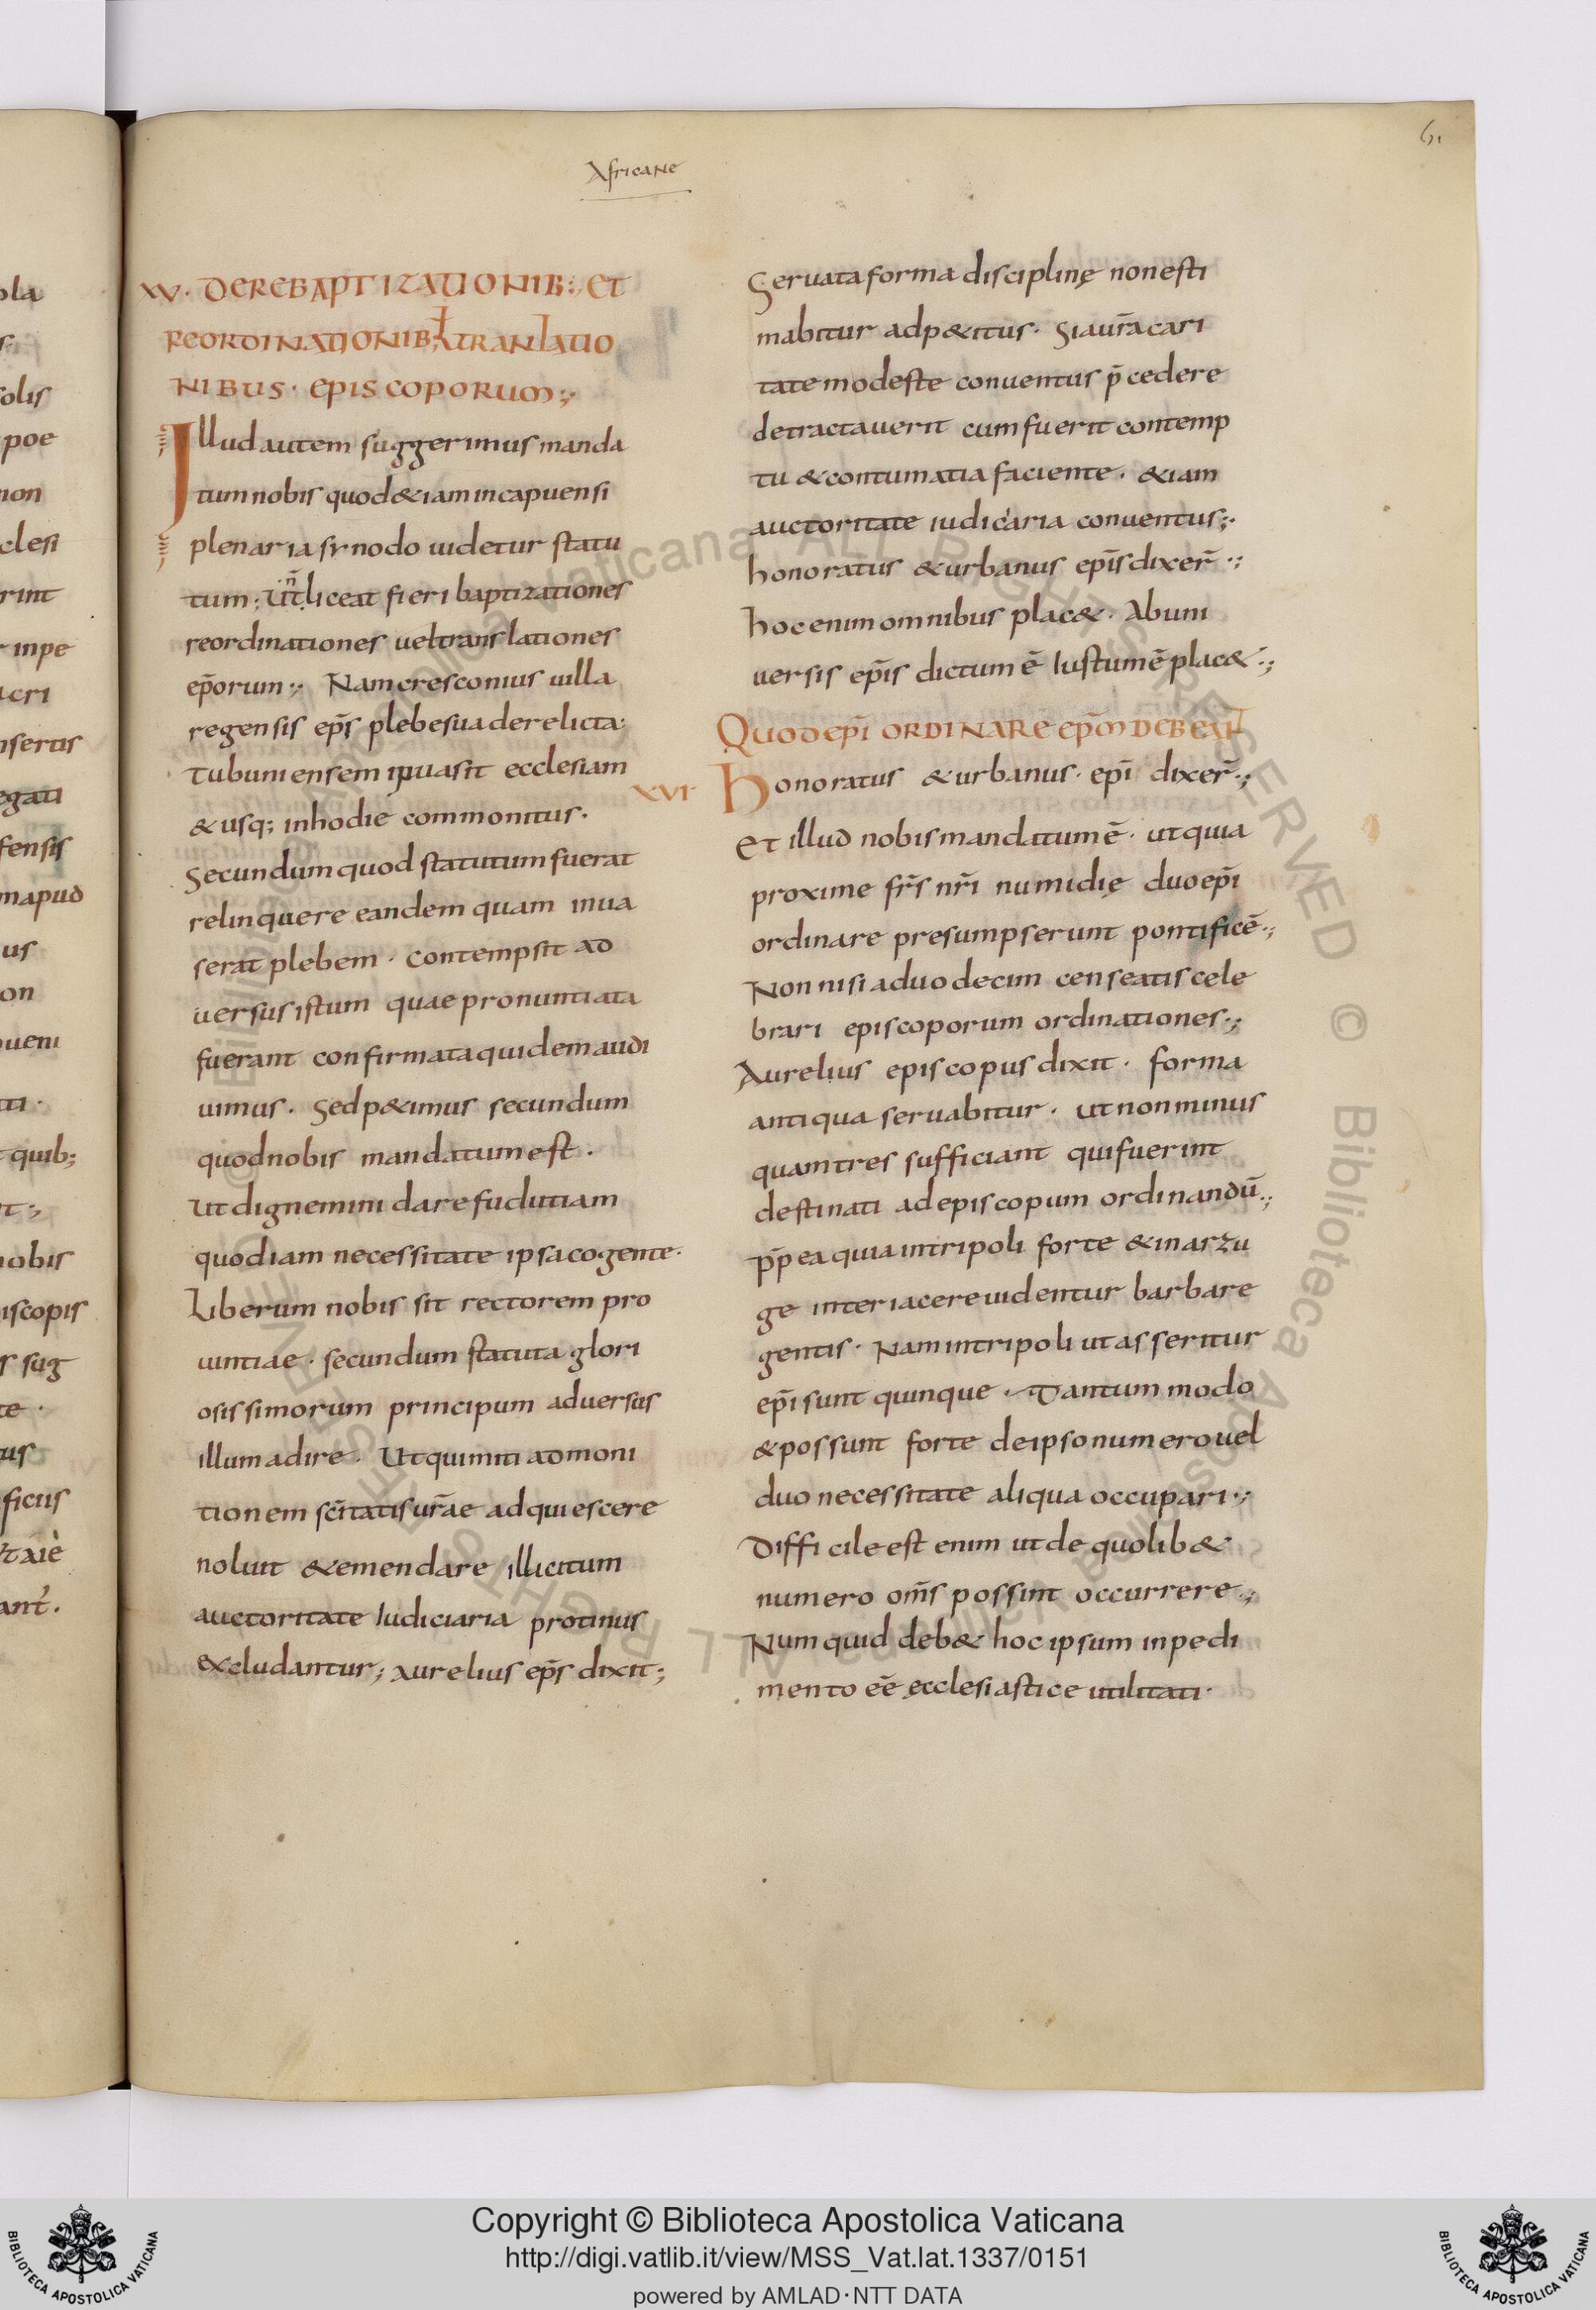 Africane
61
XV. DEREBAPTIZATIONIB:; ET
REORDINATIONIB; TRANSLATIO
NIBUS. EPISCOPORUM:;
Illud autem suggerimus manda
tum nobis quod &iam in capuensi
plenaria synodo uidetur statu
tum; Ut n̄ liceat fieri baptizationes
reordinationes uel translationes
ep̄orum:; Nam cresconius uilla
regensis ep̄s plebe sua derelicta.
Tubuniensem ipuasit ecclesiam
& usq; in hodie commonitus.
Secundum quod statutum fuerat
relinquere eandem quam inua
serat plebem. contempsit ad
uersus istum quae pronuntiata
fuerant confirmata quidem audi
uimus. Sed p&imus secundum
quod nobis mandatum est.
Ut dignemini dare fudutiam
quod iam necessitate ipsa cogente.
Liberum nobis sit rectorem pro
uintiae. secundum statuta glori
osissimorum principum aduersus
illum adire. Ut qui miti admoni
tionem sc̄itatis ur̄ae adquiescere
noluit & emendare illicitum
auctoritate Iudiciaria protinus
excludantur; Aurelius ep̄s dixit;
Seruata forma disciplinę non esti
mabitur adp&itus. Si a ur̄a cari
tate modeste conuentus p̄cedere
detractauerit cum fuerit contemp
tu & contumatia faciente. &iam
auctoritate iudiciaria conuentus;.
honoratus & urbanus ep̄is dixer̄.;
hoc enim omnibus plac&. Ab uni
uersis ep̄is dictum ē Iustum ē plac&.;
QUOD EP̄I ORDINARE EP̄M DEBEAT
XVI
honoratus & urbanus. ep̄i dixer̄.;
Et illud nobis mandatum ē. ut quia
proxime fr̄s nr̄i numidię duo ep̄i
ordinare presumpserunt pontificē.;
Non nisi a duodecim censeatis cele
brari episcoporum ordinationes.;
Aurelius episcopus dixit. forma
antiqua seruabitur. ut non minus
quam tres sufficiant qui fuerint
destinati ad episcopum ordinandū.;
p̄pea quia in tripoli forte & in arzu
ge interiacere uidentur barbare
gentis. Nam in tripoli ut asseritur
ep̄i sunt quinque. Tantum modo
& possunt forte de ipso numero uel
duo necessitate aliqua occupari.;
Difficile est enim ut de quolib&
numero om̄s possint occurrere.;
Numquid deb& hoc ipsum inpedi
mento eē ęcclesiastice utilitati.
Copyright © Biblioteca Apostolica Vaticana
http://digi.vatlib.it/view/MSS_Vat.lat.1337/0151
powered by AMLAD·NTT DATA